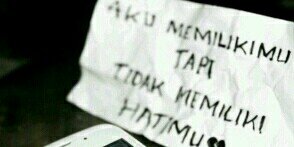 AKU MEMILIKIMU
TAPI
TIDAK MEMILIKI
HATIMU